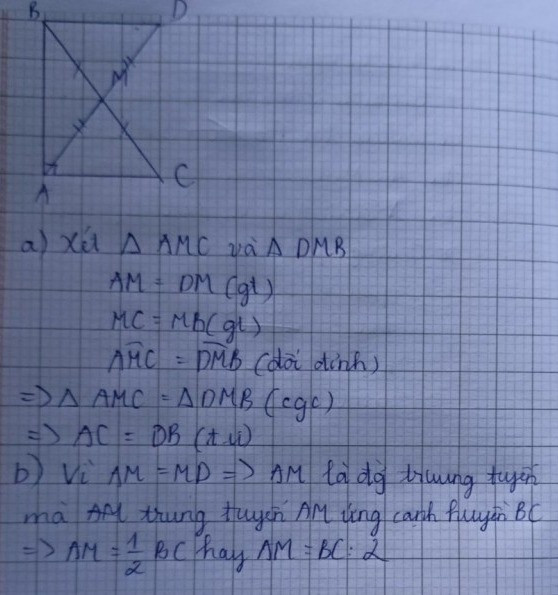 B D
M
A C
a) Xét Δ AMC và Δ DMB
AM = DM (gt)
MC = MB (gt)
AMC = DMB (đối đỉnh)
=> Δ AMC = Δ DMB (cgc)
=> AC = DB (t.ứ)
b) Vì AM = MD => AM là đg trung tuyến
mà AM trung tuyến AM ứng cạnh huyền BC
=> AM = 1/2 BC hay AM = BC : 2